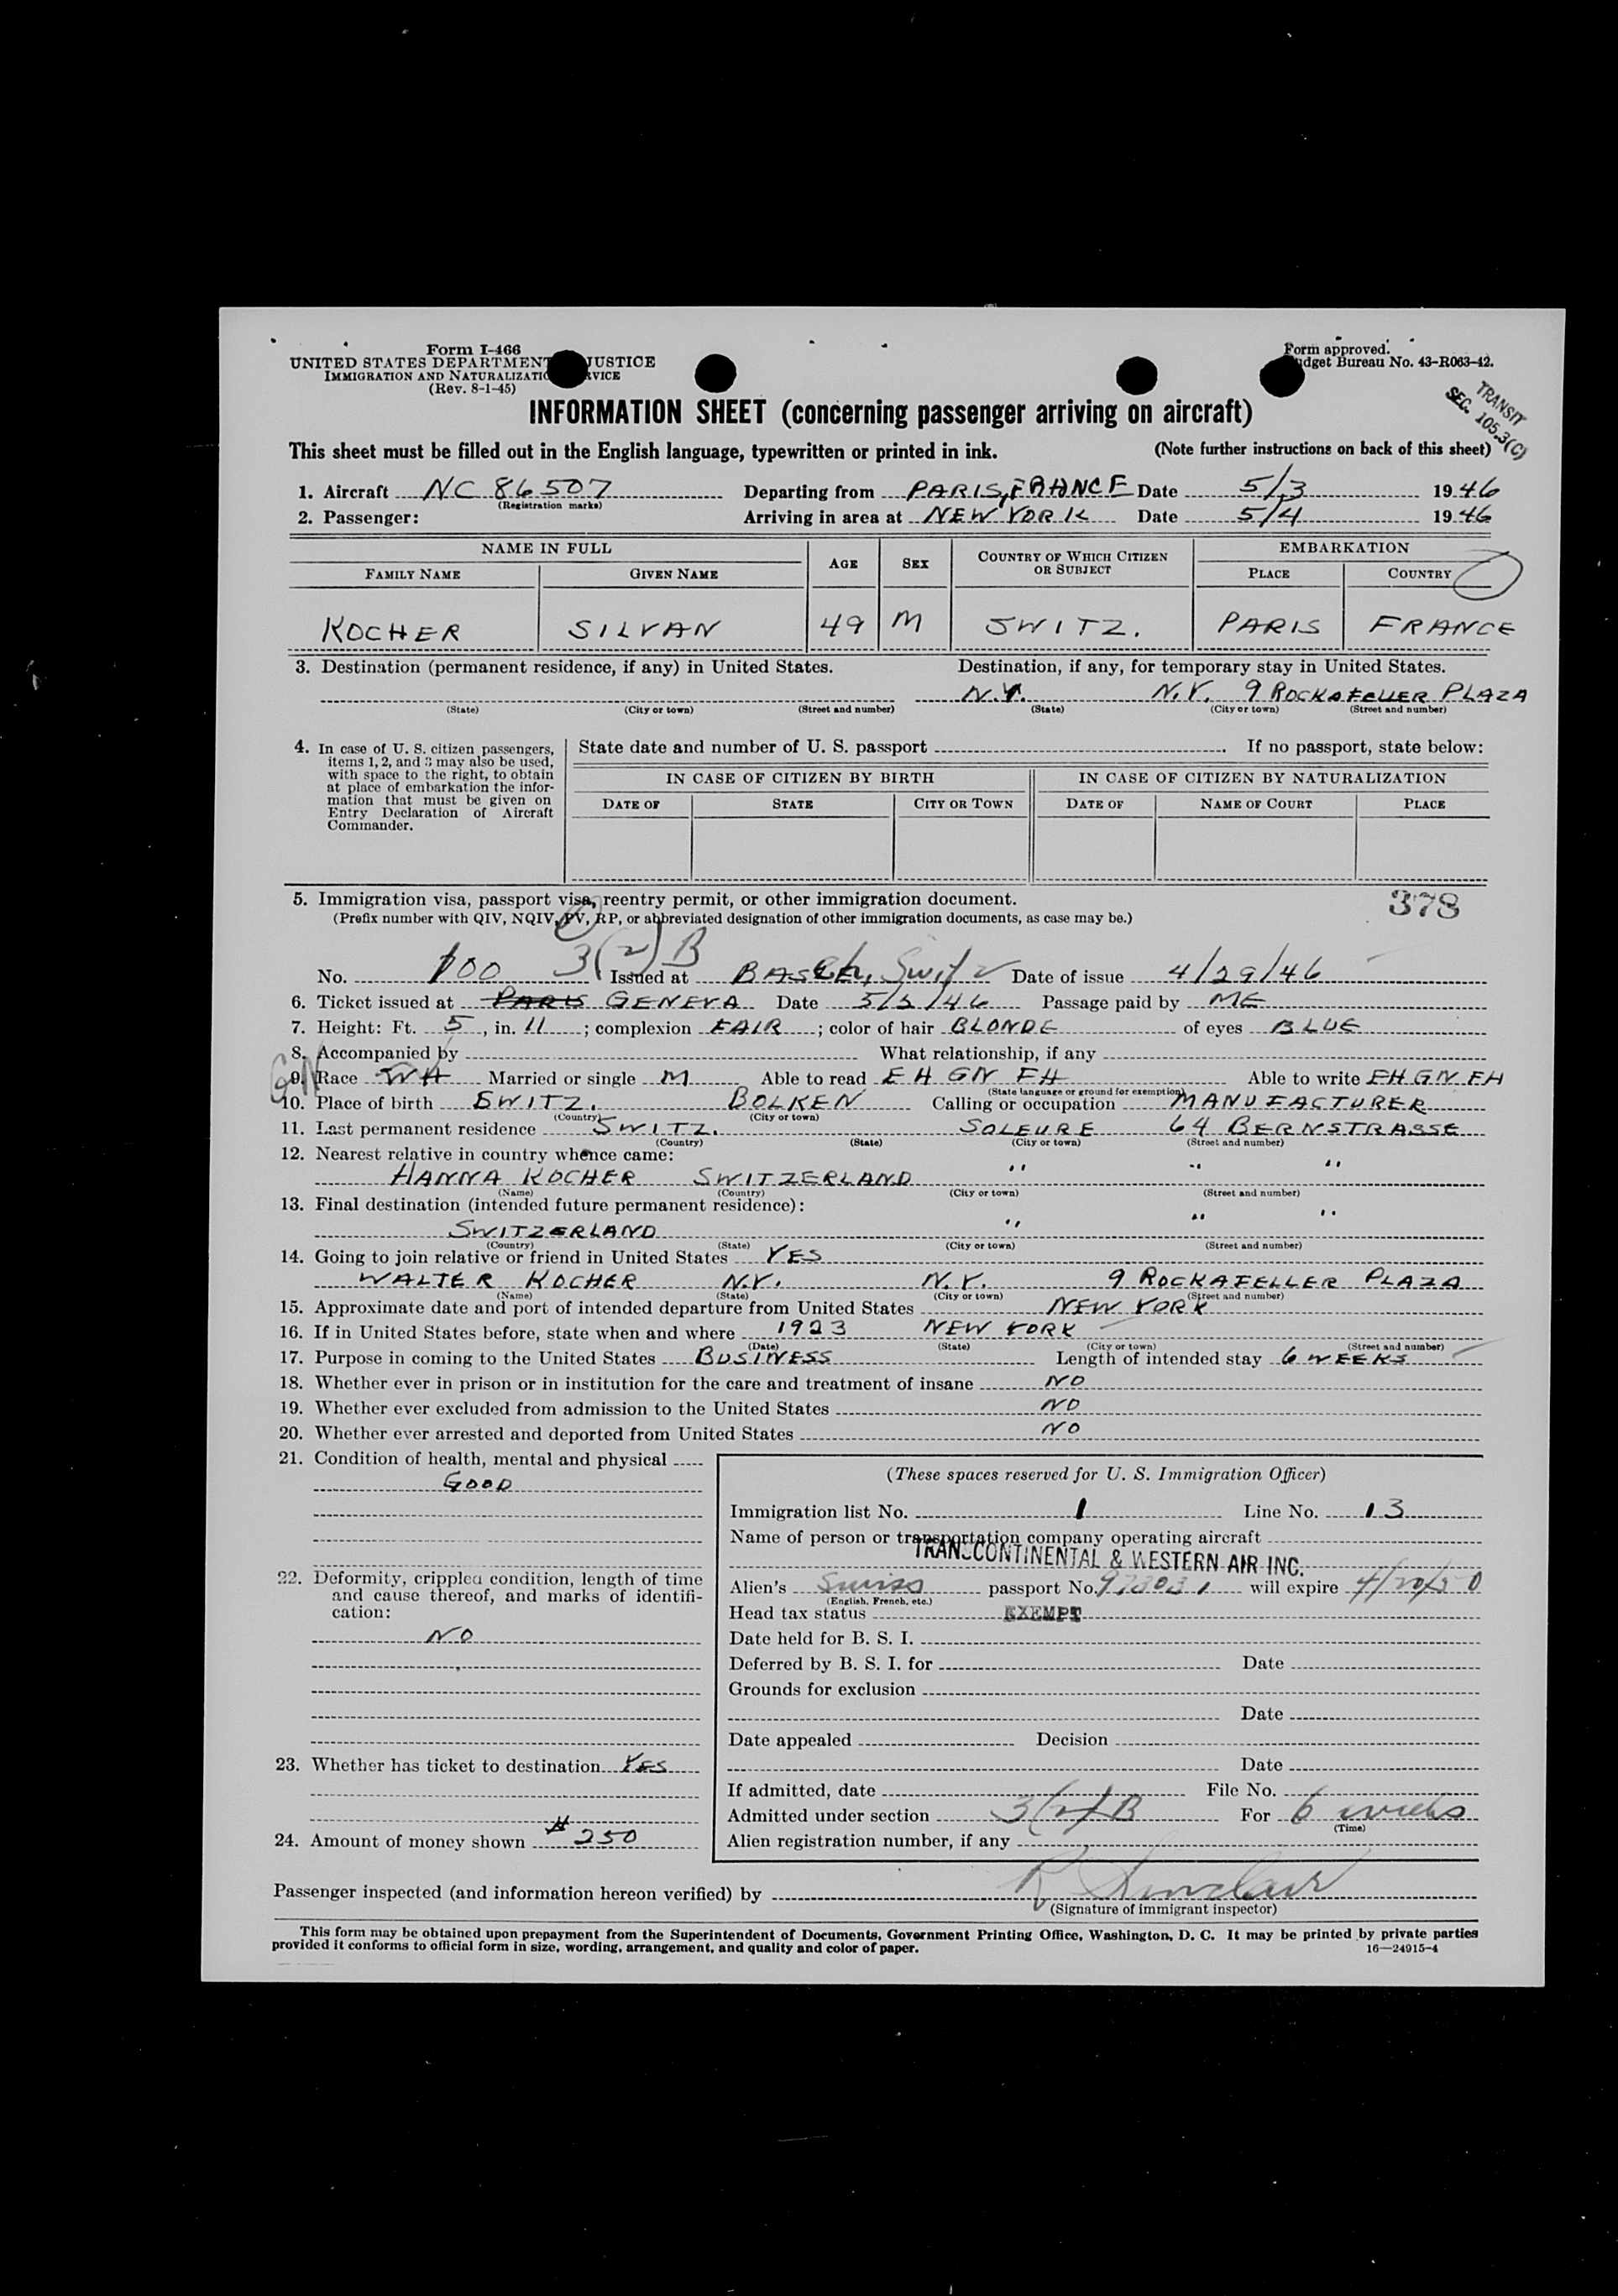 Form I-466
UNITED STATES DEPARTMENT JUSTICE
IMMIGRATION AND NATURALIZATIO RVICE
(Rev. 8-1-45)
Form approved.
dget Bureau No. 43-R063-42.
TRANSIT
SEC. 105.3(C)
INFORMATION SHEET (concerning passenger arriving on aircraft)
This sheet must be filled out in the English language, typewritten or printed in ink. (Note further instructions on back of this sheet)
1. Aircraft NC 86507 Departing from PARIS, FRANCE Date 5/3 1946
(Registration marks)
2. Passenger: Arriving in area at NEW YORK Date 5/4 1946
NAME IN FULL AGE SEX COUNTRY OF WHICH CITIZEN OR SUBJECT EMBARKATION
FAMILY NAME GIVEN NAME PLACE COUNTRY
KOCHER SILVAN 49 M SWITZ. PARIS FRANCE
3. Destination (permanent residence, if any) in United States. Destination, if any, for temporary stay in United States.
N.Y. N.Y. 9 ROCKAFELLER PLAZA
(State) (City or town) (Street and number) (State) (City or town) (Street and number)
4. In case of U. S. citizen passengers, items 1, 2, and 3 may also be used, with space to the right, to obtain at place of embarkation the information that must be given on Entry Declaration of Aircraft Commander.
State date and number of U. S. passport . If no passport, state below:
IN CASE OF CITIZEN BY BIRTH IN CASE OF CITIZEN BY NATURALIZATION
DATE OF STATE CITY OR TOWN DATE OF NAME OF COURT PLACE
5. Immigration visa, passport visa, reentry permit, or other immigration document. 378
(Prefix number with QIV, NQIV, PV, RP, or abbreviated designation of other immigration documents, as case may be.)
3(2)B
No. 100 Issued at BASEL, Switz Date of issue 4/29/46
6. Ticket issued at PARIS GENEVA Date 5/2/46 Passage paid by ME
7. Height: Ft. 5, in. 11; complexion FAIR; color of hair BLONDE of eyes BLUE
8. Accompanied by What relationship, if any
GN
9. Race WH Married or single M Able to read EH GN FH Able to write EH GN FH
(State language or ground for exemption)
10. Place of birth SWITZ. BOLKEN Calling or occupation MANUFACTURER
(Country) (City or town)
11. Last permanent residence SWITZ. SOLEURE 64 BERNSTRASSE
(Country) (State) (City or town) (Street and number)
12. Nearest relative in country whence came:
HANNA KOCHER SWITZERLAND " " "
(Name) (Country) (City or town) (Street and number)
13. Final destination (intended future permanent residence):
SWITZERLAND " " "
(Country) (State) (City or town) (Street and number)
14. Going to join relative or friend in United States YES
WALTER KOCHER N.Y. N.Y. 9 ROCKAFELLER PLAZA
(Name) (State) (City or town) (Street and number)
15. Approximate date and port of intended departure from United States NEW YORK
16. If in United States before, state when and where 1923 NEW YORK
(Date) (State) (City or town) (Street and number)
17. Purpose in coming to the United States BUSINESS Length of intended stay 6 WEEKS
18. Whether ever in prison or in institution for the care and treatment of insane NO
19. Whether ever excluded from admission to the United States NO
20. Whether ever arrested and deported from United States NO
21. Condition of health, mental and physical
GOOD
22. Deformity, crippled condition, length of time and cause thereof, and marks of identification:
NO
23. Whether has ticket to destination YES
24. Amount of money shown $250
(These spaces reserved for U. S. Immigration Officer)
Immigration list No. 1 Line No. 13
Name of person or transportation company operating aircraft
TRANSCONTINENTAL & WESTERN AIR INC.
Alien's Swiss passport No. will expire 4/20/50
(English, French, etc.)
Head tax status EXEMPT
Date held for B. S. I.
Deferred by B. S. I. for Date
Grounds for exclusion
Date
Date appealed Decision
Date
If admitted, date File No.
Admitted under section 3(2)B For 6 weeks
(Time)
Alien registration number, if any
Passenger inspected (and information hereon verified) by R Sinclair
(Signature of immigrant inspector)
This form may be obtained upon prepayment from the Superintendent of Documents, Government Printing Office, Washington, D. C. It may be printed by private parties
provided it conforms to official form in size, wording, arrangement, and quality and color of paper. 16—24915-4